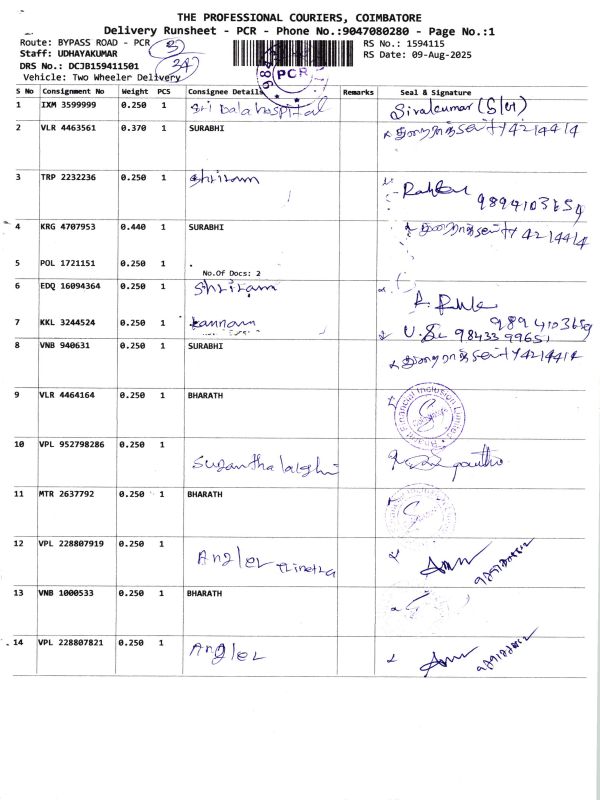 THE PROFESSIONAL COURIERS, COIMBATORE
Delivery Runsheet - PCR - Phone No.:9047080280 - Page No.:1
Route: BYPASS ROAD - PCR 3
RS No.: 1594115
Staff: UDHAYAKUMAR
RS Date: 09-Aug-2025
DRS No.: DCJB159411501 34
Vehicle: Two Wheeler Delivery
PCR
S No Consignment No Weight PCS Consignee Details Remarks Seal & Signature
1 IXM 3599999 0.250 1 Sri Bala hospital Sivakumar
2 VLR 4463561 0.370 1 SURABHI 4214414
3 TRP 2232236 0.250 1 Shriram 9894103659
4 KRG 4707953 0.440 1 SURABHI 4214414
5 POL 1721151 0.250 1
No.Of Docs: 2
6 EDQ 16094364 0.250 1 Shriram 9894103659
7 KKL 3244524 0.250 1 Kannan 9843399651
8 VNB 940631 0.250 1 SURABHI 4214414
9 VLR 4464164 0.250 1 BHARATH Financial Inclusion Limited
10 VPL 952798286 0.250 1
11 MTR 2637792 0.250 1 BHARATH
12 VPL 228807919 0.250 1 Angler
13 VNB 1000533 0.250 1 BHARATH
14 VPL 228807821 0.250 1 Angler